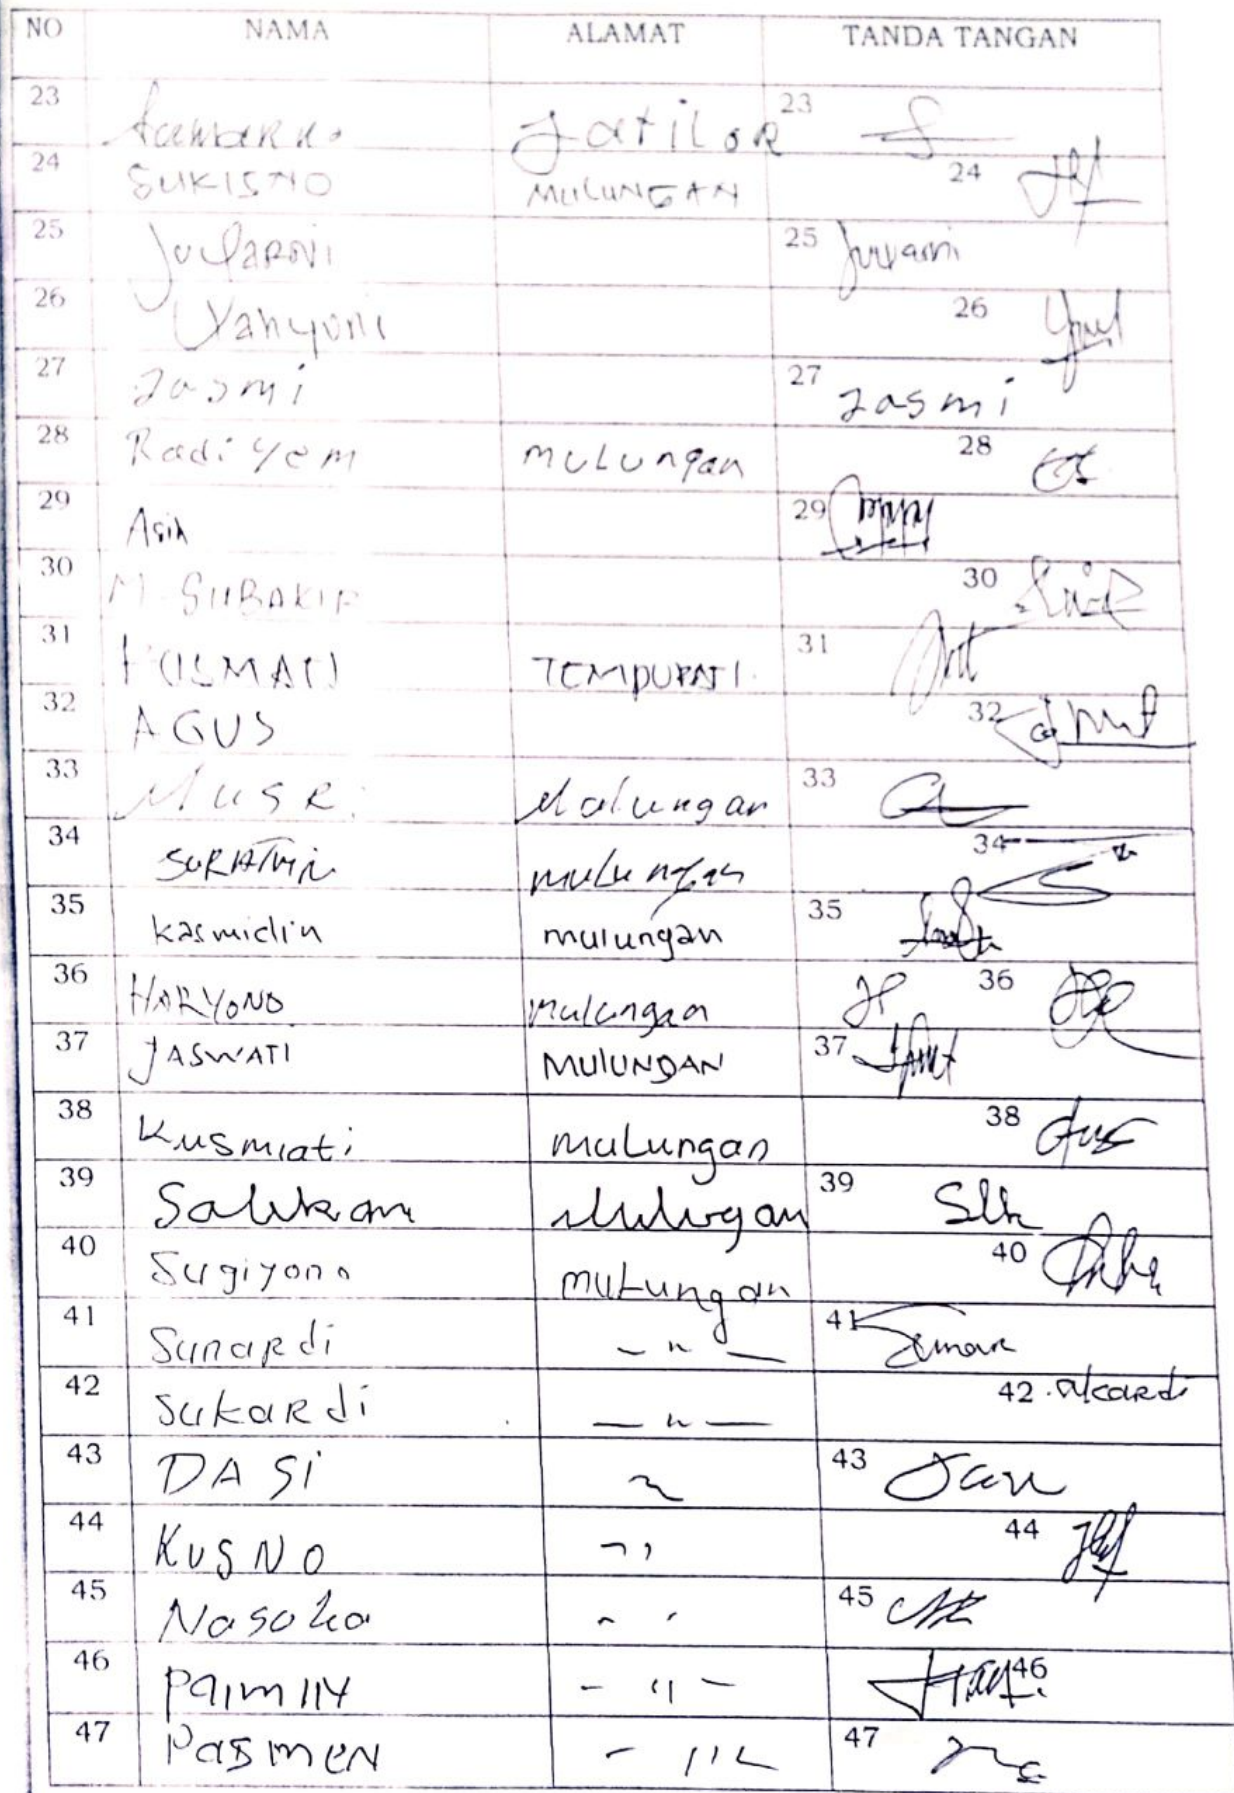 NO NAMA ALAMAT TANDA TANGAN
23 Jatilor 23
24 SUKISNO MULUNGAN 24
25 25
26 Wahyuni 26
27 Jasmi 27 Jasmi
28 Radiyem mulungan 28
29 Asih 29
30 M. SUBAKIR 30
31 TEMPUREJI 31
32 AGUS 32
33 Musri Mulungan 33
34 SURATMIN mulungan 34
35 kasmidin mulungan 35
36 HARYONO mulungan 36
37 JASWATI MULUNGAN 37
38 Kusmiati mulungan 38
39 Salikan Mulungan 39 Slk
40 Sugiyono mulungan 40
41 Sunardi — " — 41
42 Sukardi — " — 42
43 DASI 43
44 KUSNO 44
45 Nasoka " 45
46 - " - 46
47 Pasmen 47